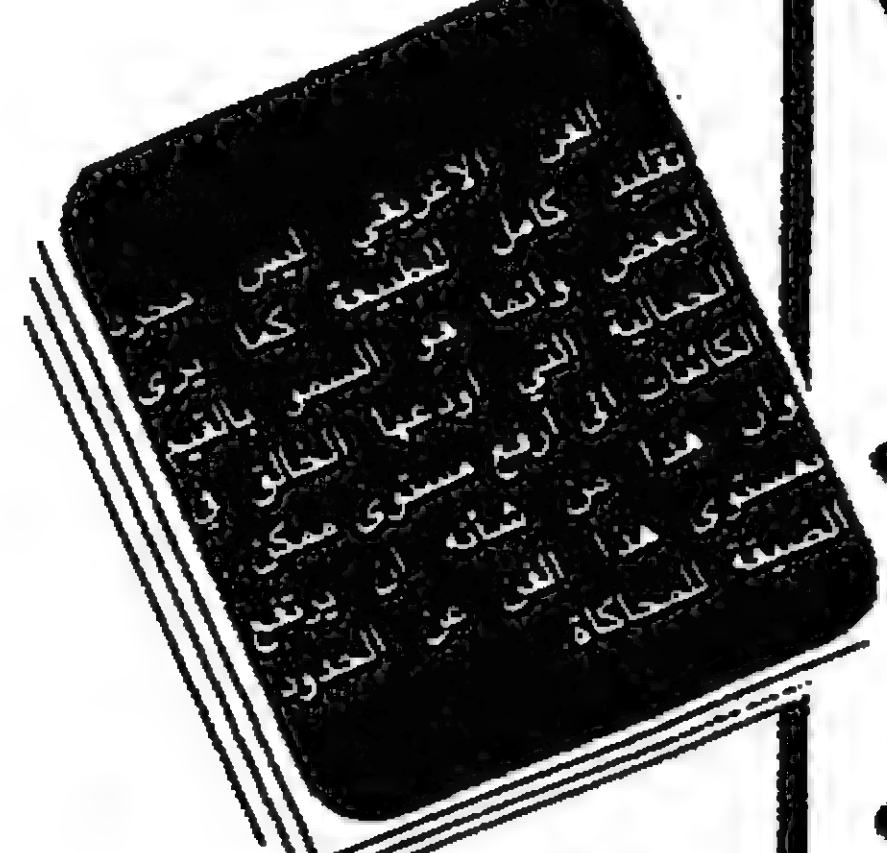 الفن الاغريقي ليس مجرد
تقليد كامل للطبيعة كما يرى
البعض وانما هو السمو بالقيم
الجمالية التي اودعها الخالق في
الكائنات الى ارفع مستوى ممكن
وان هذا من شأنه ان يرتفع
بمستوى هذا الفن عن الحدود
الضيقة للمحاكاة